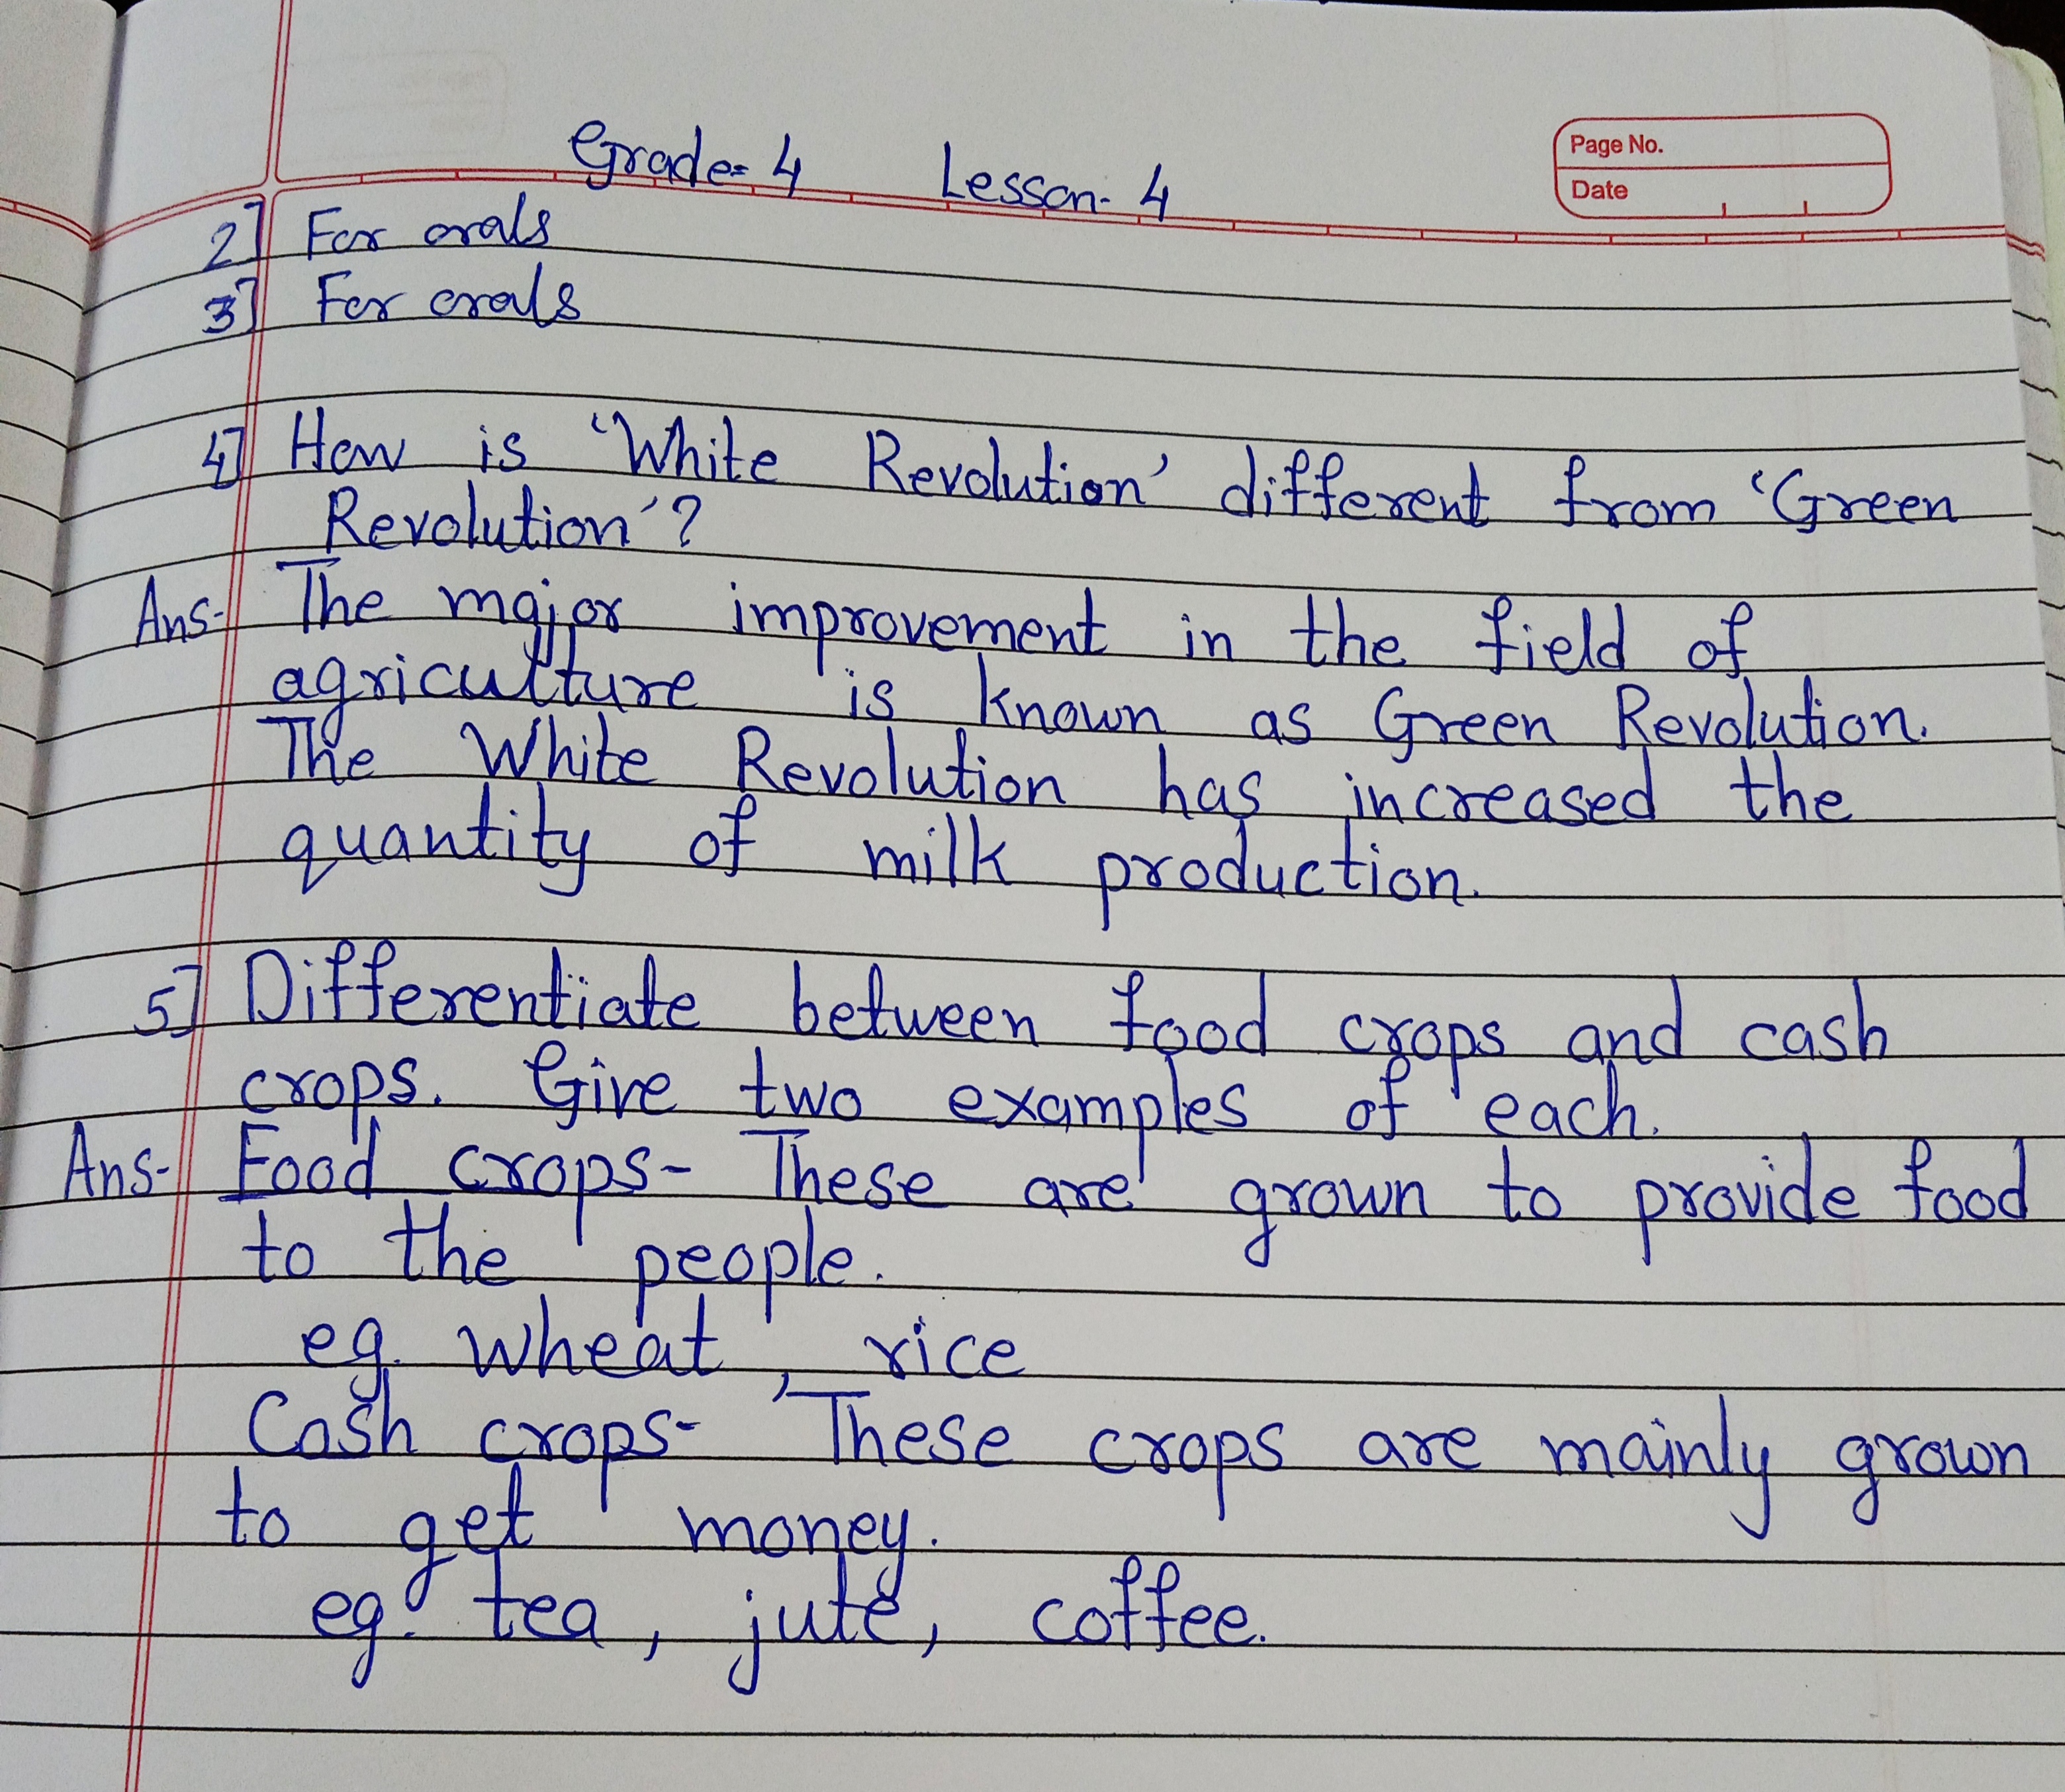 Grade- 4 Lesson- 4
Page No.
Date
2] For orals
3] For orals
4] How is 'White Revolution' different from 'Green
Revolution'?
Ans- The major improvement in the field of
agriculture is known as Green Revolution.
The White Revolution has increased the
quantity of milk production.
5] Differentiate between food crops and cash
crops. Give two examples of each.
Ans- Food crops- These are grown to provide food
to the people.
eg. wheat, rice
Cash crops- These crops are mainly grown
to get money.
eg. tea, jute, coffee.